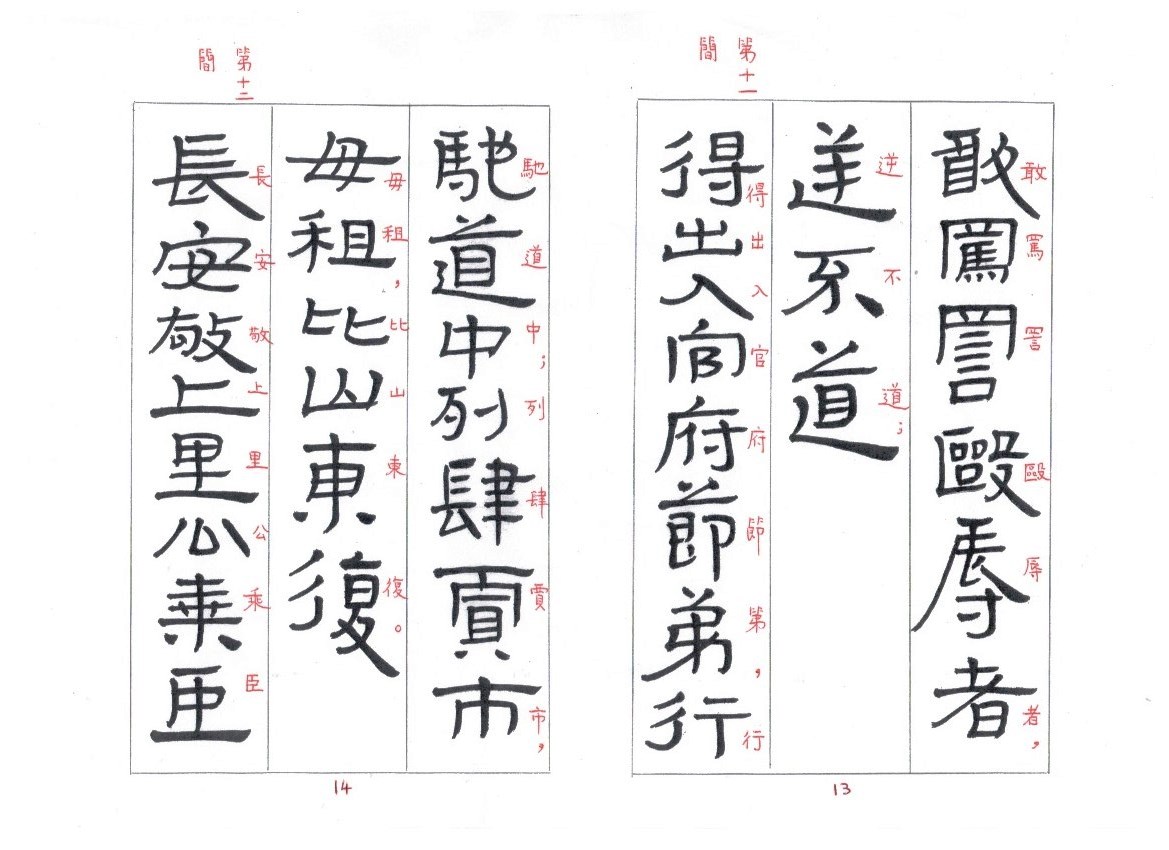 第十一
簡
敢罵詈毆辱者
敢罵詈毆辱者，
逆不道
逆不道；
得出入官府節弟行
得出入官府節第，行
13
第十二
簡
馳道中列肆賈市
馳道中；列肆賈市，
毋租比山東復
毋租，比山東復。
長安敬上里公乘臣
長安敬上里公乘臣
14